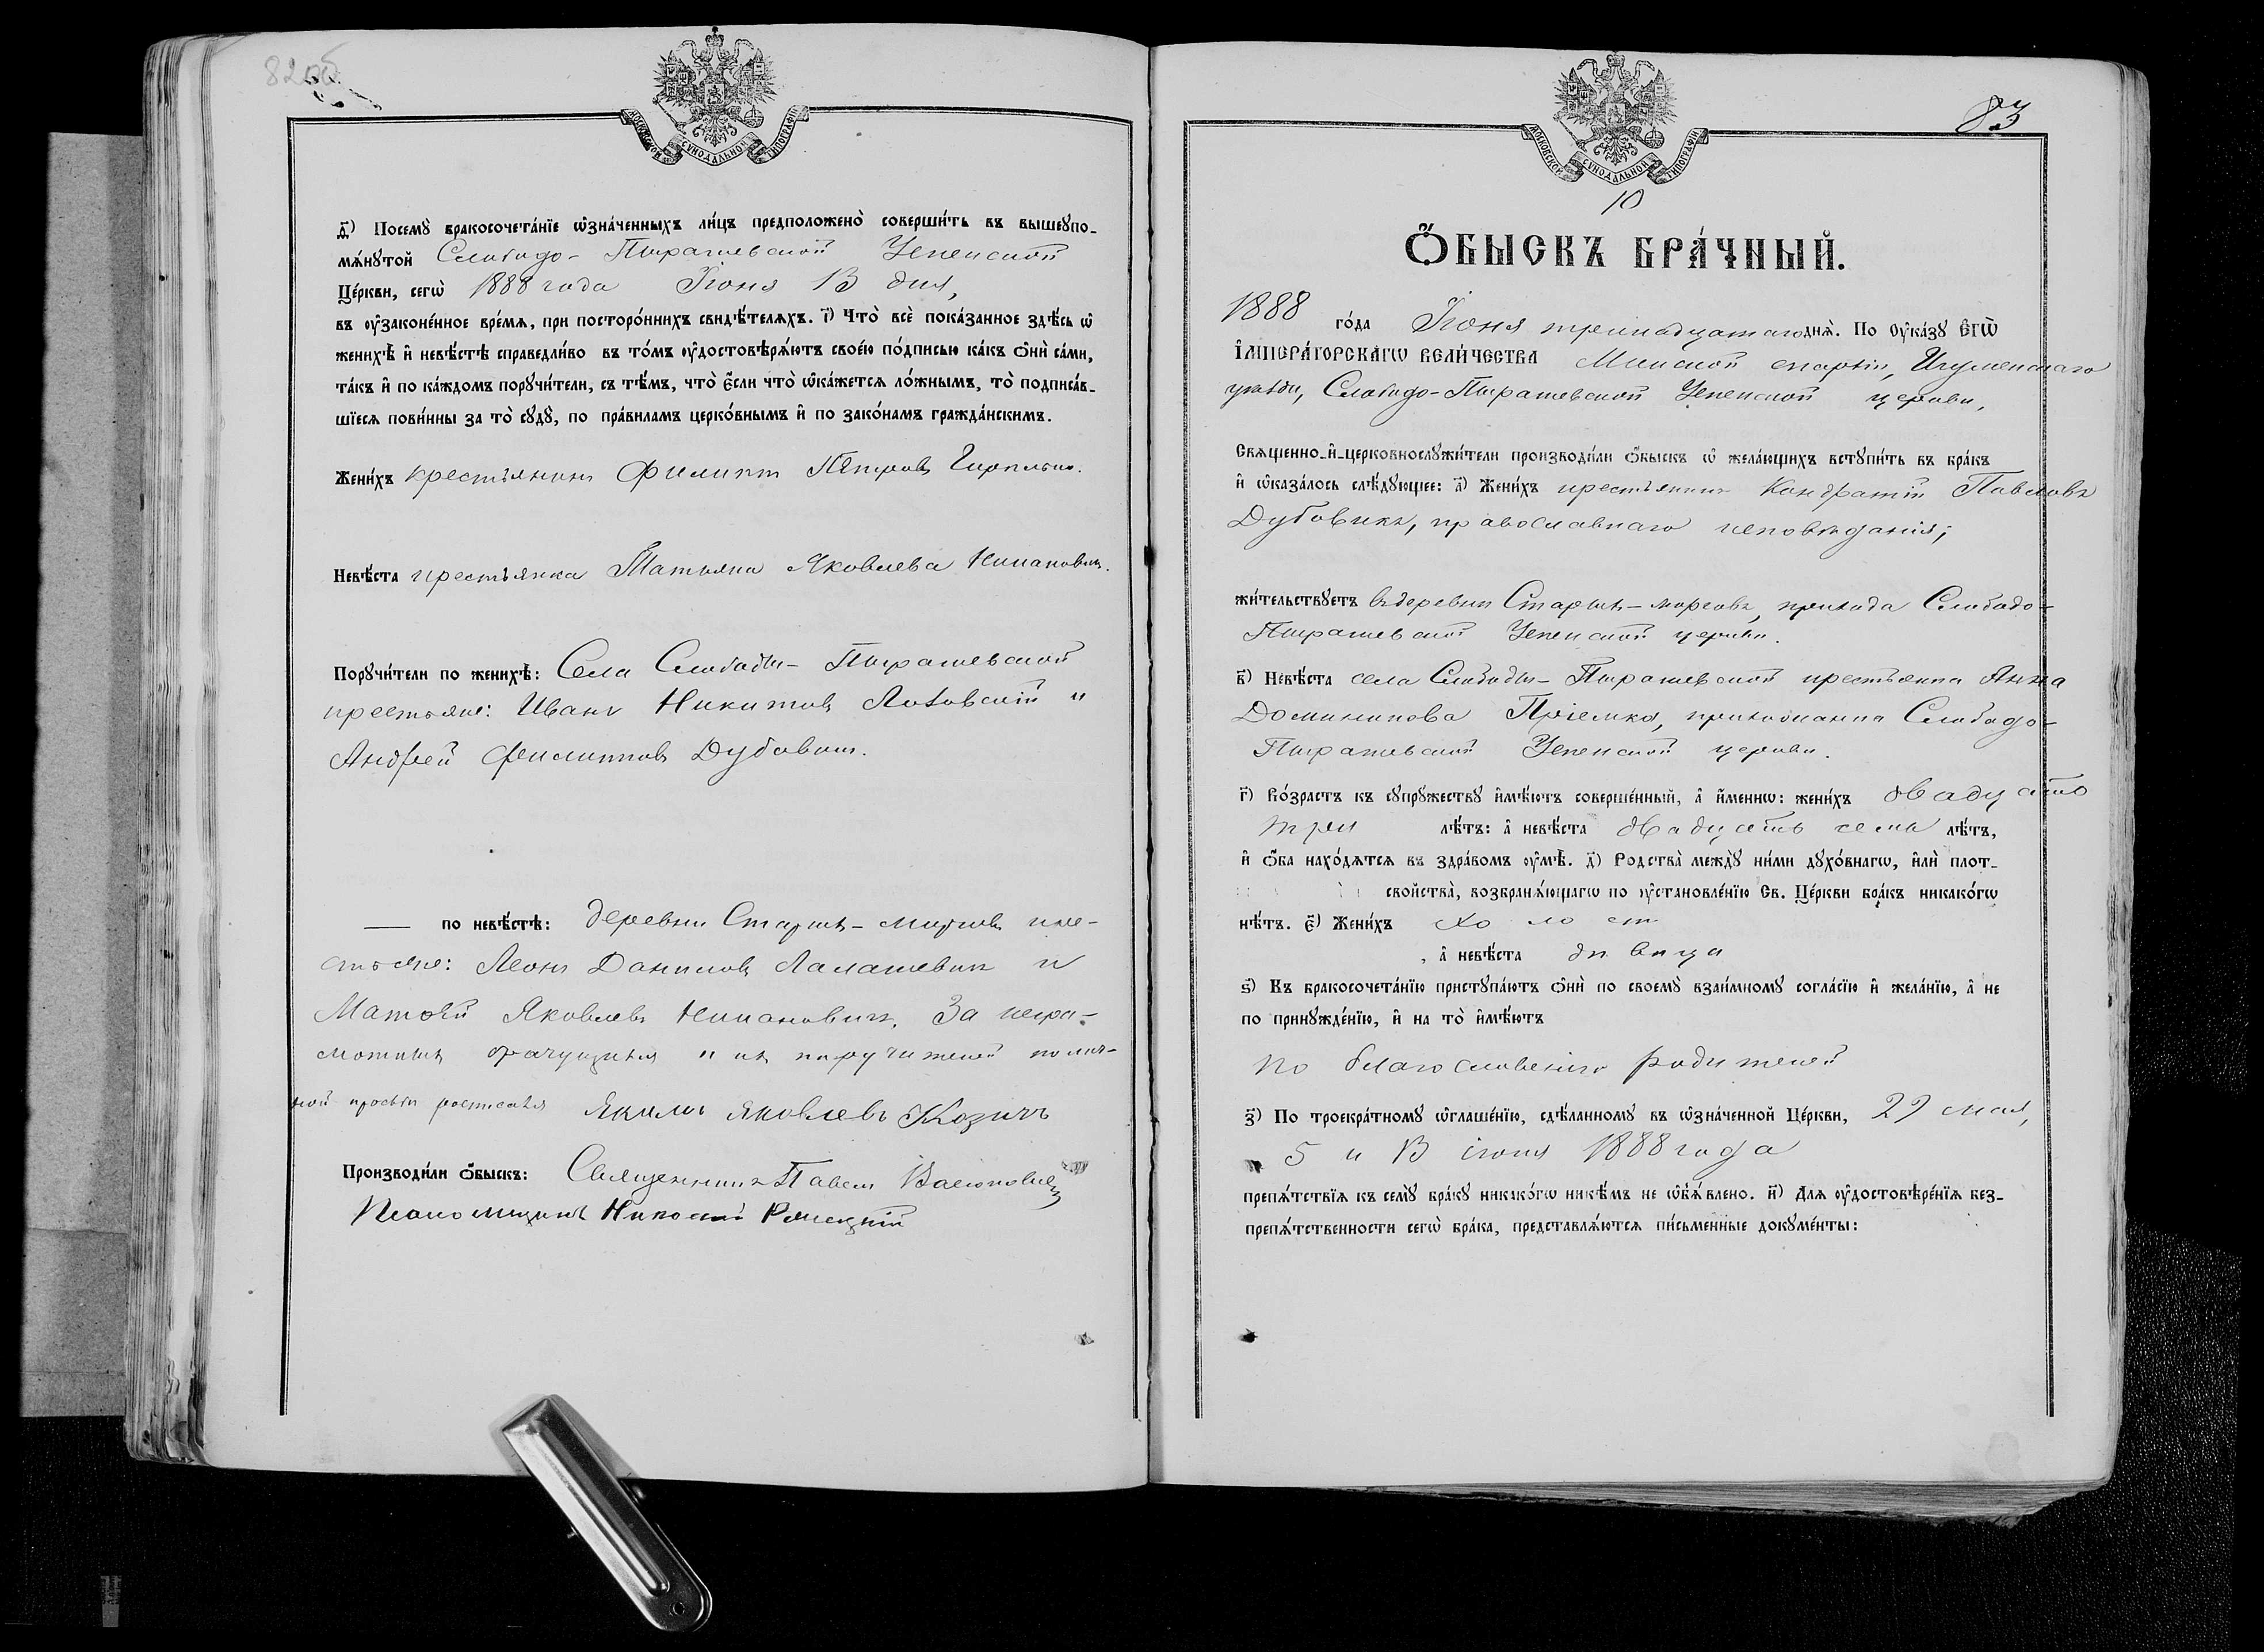 82об
МОСКОВСКОЙ СѴНОДАЛЬНОЙ ТИПОГРАФІИ
д҃) Посемꙋ̀ бракосочета́нїе ѡ҆зна́ченныхъ ли́цъ предположено̀ соверши́ть въ вышеꙋпо-
мѧ́нꙋтой Слободо-Пырашевской Успенской
Це́ркви, сегѡ̀ 1888 года Іюня 13 дня,
въ ᲂу҆законе́нное вре́мѧ, при посторо́ннихъ свидѣ́телѧхъ. ı҃) Что̀ всѐ пока́занное здѣ́сь ѡ҆
женихѣ̀ и҆ невѣ́стѣ справедли́во въ то́мъ ᲂу҆достовѣрѧ́ютъ свое́ю по́дписью ка́къ ѻ҆нѝ са́ми,
та́къ и҆ по ка́ждомъ порꙋчи́тели, съ тѣ́мъ, что̀ є҆́сли что̀ ѡ҆ка́жетсѧ ло́жнымъ, то̀ подписа́в-
шїесѧ пови́нны за то̀ сꙋдꙋ̀, по пра́виламъ церко́внымъ и҆ по зако́намъ гражда́нскимъ.
Жени́хъ крестьянинъ Филиппъ Петровъ
Невѣ́ста крестьянка Татьяна Яковлева
Порꙋчи́тели по женихѣ̀: Села Слободы-Пырашевской
крестьяне: Иванъ Никитовъ и
Андрей Филипповъ Дубовикъ.
— по невѣ́стѣ: деревни Старыхъ- кре-
стьяне: Леонъ Даниловъ Лалашевичъ и
Матѳей Яковлевъ За негра-
мотныхъ и ихъ поручителей по лич-
ной просьбѣ росписался Якимъ Яковлевъ Козичъ
Производи́ли ѻ҆́быскъ: Священникъ Павелъ
Псаломщикъ Николай
83
МОСКОВСКОЙ СѴНОДАЛЬНОЙ ТИПОГРАФІИ
10
Ѻ҆́БЫСКЪ БРА́ЧНЫЙ.
1888 го́да Іюня тринадцатаго днѧ̀. По ᲂу҆ка́зꙋ Е҆гѡ̀
І҆мпера́торскагѡ Вели́чества Минской епархіи, Игуменскаго
уѣзда, Слободо-Пырашевской Успенской церкви,
Свѧщенно-и҆-церковнослꙋжи́тели производи́ли ѻ҆́быскъ ѡ҆ жела́ющихъ встꙋпи́ть въ бра́къ
и҆ ѡ҆каза́лось слѣ́дꙋющее: а҃) Жени́хъ крестьянинъ Кондратій Павловъ
Дубовикъ, православнаго исповѣданія,
жи́тельствꙋетъ въ деревни Старыхъ- прихода Слободо-
Пырашевской Успенской церкви.
в҃) Невѣ́ста села Слободы-Пырашевской крестьянка Анна
Доминикова Пріемко, прихожанка Слободо-
Пырашевской Успенской церкви.
г҃) Во́зрастъ къ сꙋпрꙋ́жествꙋ и҆мѣ́ютъ соверше́нный, а҆ и҆́меннѡ: жени́хъ двадцать
три лѣ́тъ: а҆ невѣ́ста двадцать семь лѣ́тъ,
и҆ ѻ҆́ба нахо́дѧтсѧ въ здра́вомъ ᲂу҆мѣ̀. д҃) Родства̀ междꙋ̀ ни́ми дꙋхо́внагѡ, и҆лѝ плот-
свойства̀, возбранѧ́ющагѡ по ᲂу҆становле́нїю Св. Це́ркви бра́къ никако́гѡ
нѣ́тъ. є҃) Жени́хъ холостъ
, а҆ невѣ́ста дѣвица
ѕ҃) Къ бракосочета́нїю пристꙋпа́ютъ ѻ҆нѝ по своемꙋ̀ взаи́мномꙋ согла́сїю и҆ жела́нїю, а҆ не
по принꙋжде́нїю, и҆ на то̀ и҆мѣ́ютъ
по благословенію родителей
з҃) По троекра́тномꙋ ѡ҆глаше́нїю, сдѣ́ланномꙋ въ ѡ҆зна́ченной Це́ркви, 29 мая,
5 и 13 іюня 1888 года
препѧ́тствїѧ къ семꙋ̀ бра́кꙋ никако́гѡ никѣ́мъ не ѡ҆б̾ѧ́влено. и҃) Длѧ ᲂу҆достовѣре́нїѧ без-
препѧ́тственности сегѡ̀ бра́ка, представлѧ́ютсѧ пи́сьменные докꙋме́нты: